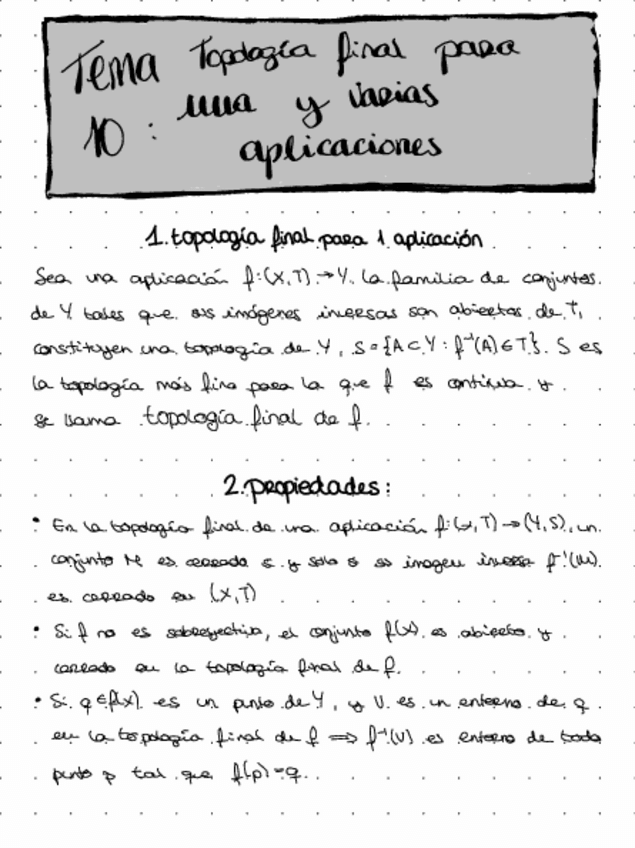 Tema 10: Topología final para
una y varias
aplicaciones
1. topología final para 1 aplicación
Sea una aplicación f:(X,T)→Y. La familia de conjuntos
de Y tales que sus imágenes inversas son abiertas de T,
constituyen una topología de Y, S={A⊂Y: f⁻¹(A)∈T}. S es
la topología más fina para la que f es continua y
se llama topología final de f.
2. propiedades:
• En la topología final de una aplicación f:(X,T)→(Y,S), un
conjunto M es cerrado si y solo si su imagen inversa f⁻¹(M)
es cerrado en (X,T)
• Si f no es sobreyectiva, el conjunto f(X) es abierto y
cerrado en la topología final de f.
• Si q∈f(X) es un punto de Y, y U es un entorno de q
en la topología final de f ⟹ f⁻¹(U) es entorno de todo
punto p tal que f(p)=q.